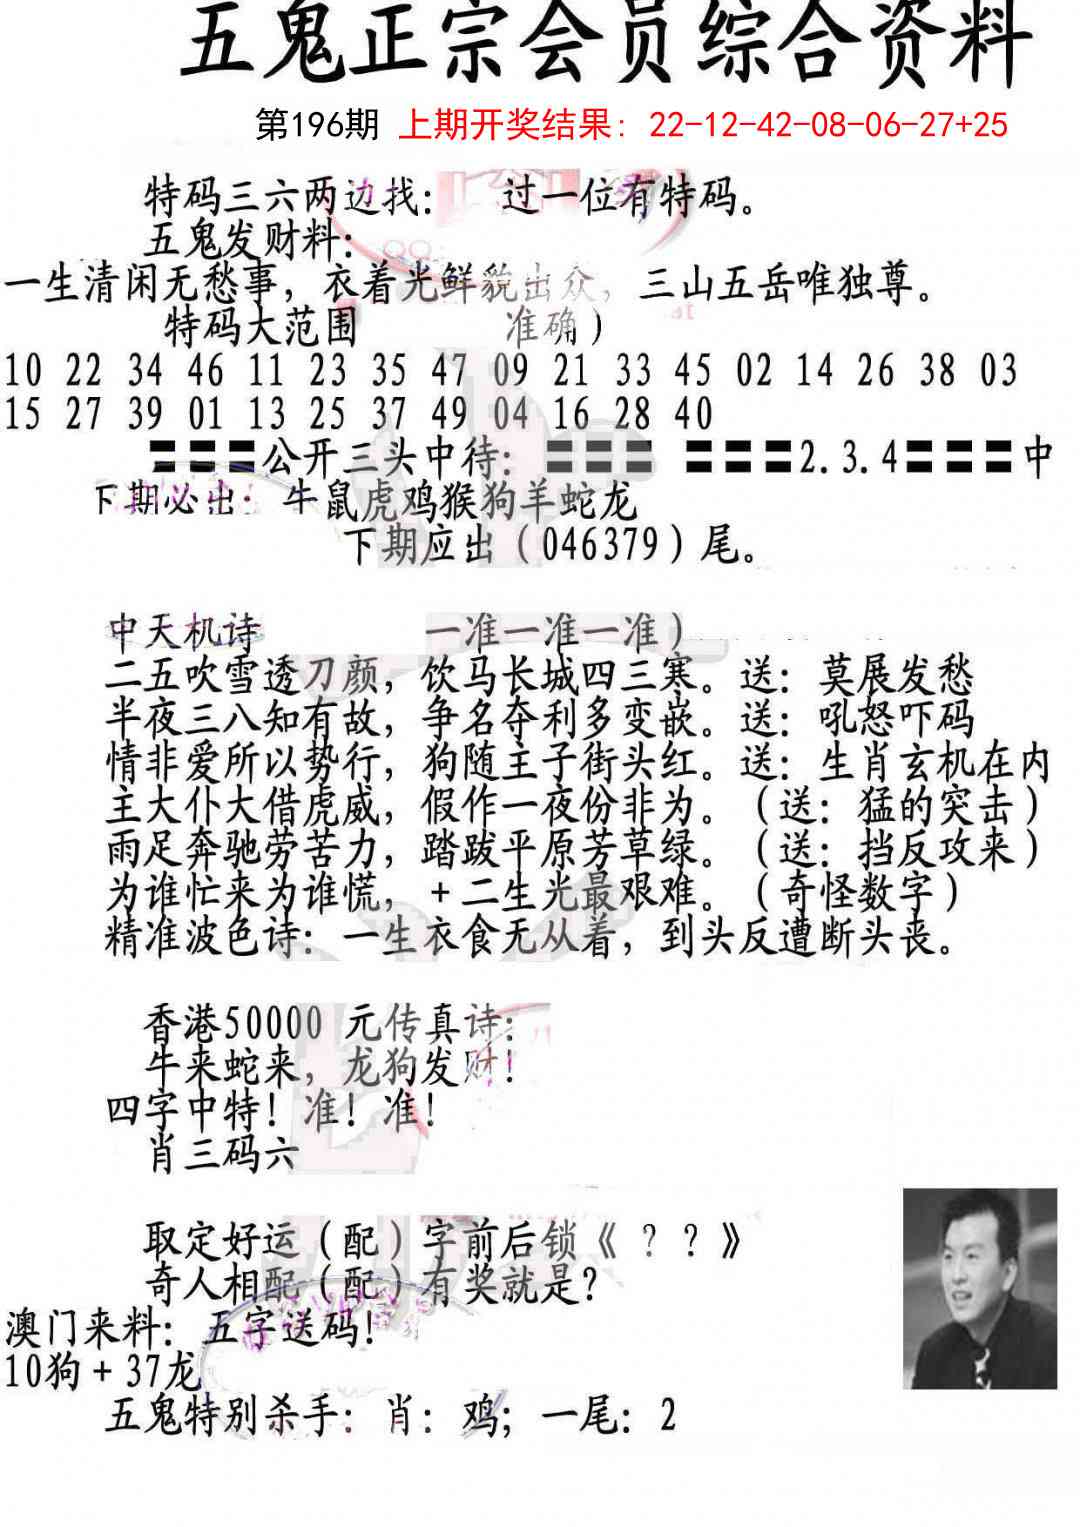 五鬼正宗会员综合资料
第196期 上期开奖结果：22-12-42-08-06-27+25
特码三六两边找： 过一位有特码。
五鬼发财料：
一生清闲无愁事，衣着光鲜貌出众，三山五岳唯独尊。
特码大范围 准确）
10 22 34 46 11 23 35 47 09 21 33 45 02 14 26 38 03
15 27 39 01 13 25 37 49 04 16 28 40
〓〓〓公开三头中待：〓〓〓 〓〓〓2.3.4〓〓〓中
下期必出：牛鼠虎鸡猴狗羊蛇龙
下期应出（046379）尾。
中天机诗 一准一准一准）
二五吹雪透刀颜，饮马长城四三寒。送：莫展发愁
半夜三八知有故，争名夺利多变嵌。送：吼怒吓码
情非爱所以势行，狗随主子街头红。送：生肖玄机在内
主大仆大借虎威，假作一夜份非为。（送：猛的突击）
雨足奔驰劳苦力，踏跋平原芳草绿。（送：挡反攻来）
为谁忙来为谁慌，+二生光最艰难。（奇怪数字）
精准波色诗：一生衣食无从着，到头反遭断头丧。
香港50000 元传真诗：
牛来蛇来，龙狗发财！
四字中特！准！准！
肖三码六
取定好运（配）字前后锁《 ？？》
奇人相配（配）有奖就是？
澳门来料：五字送码！
10狗+37龙
五鬼特别杀手：肖：鸡；一尾：2